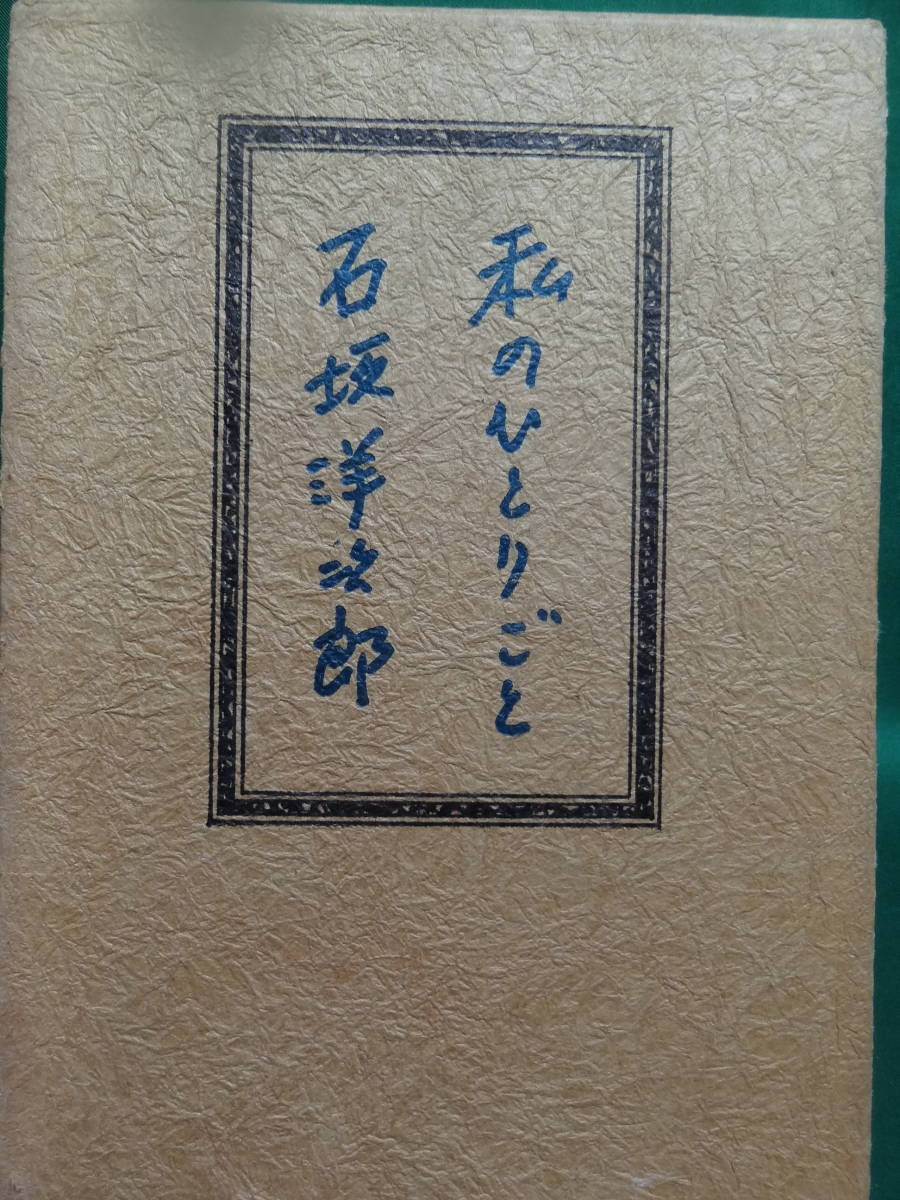 私のひとりごと
石坂洋次郎